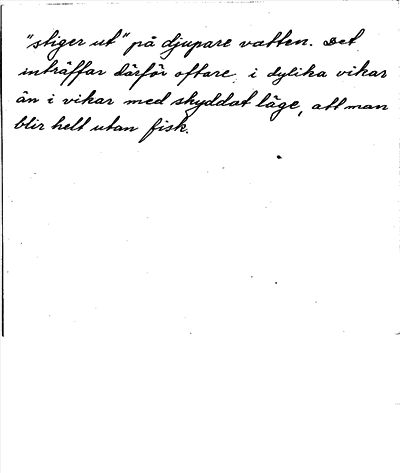 "stiger ut" på djupare vatten. Det
inträffar därför oftare i dylika vikar
än i vikar med skyddat läge, att man
blir helt utan fisk.